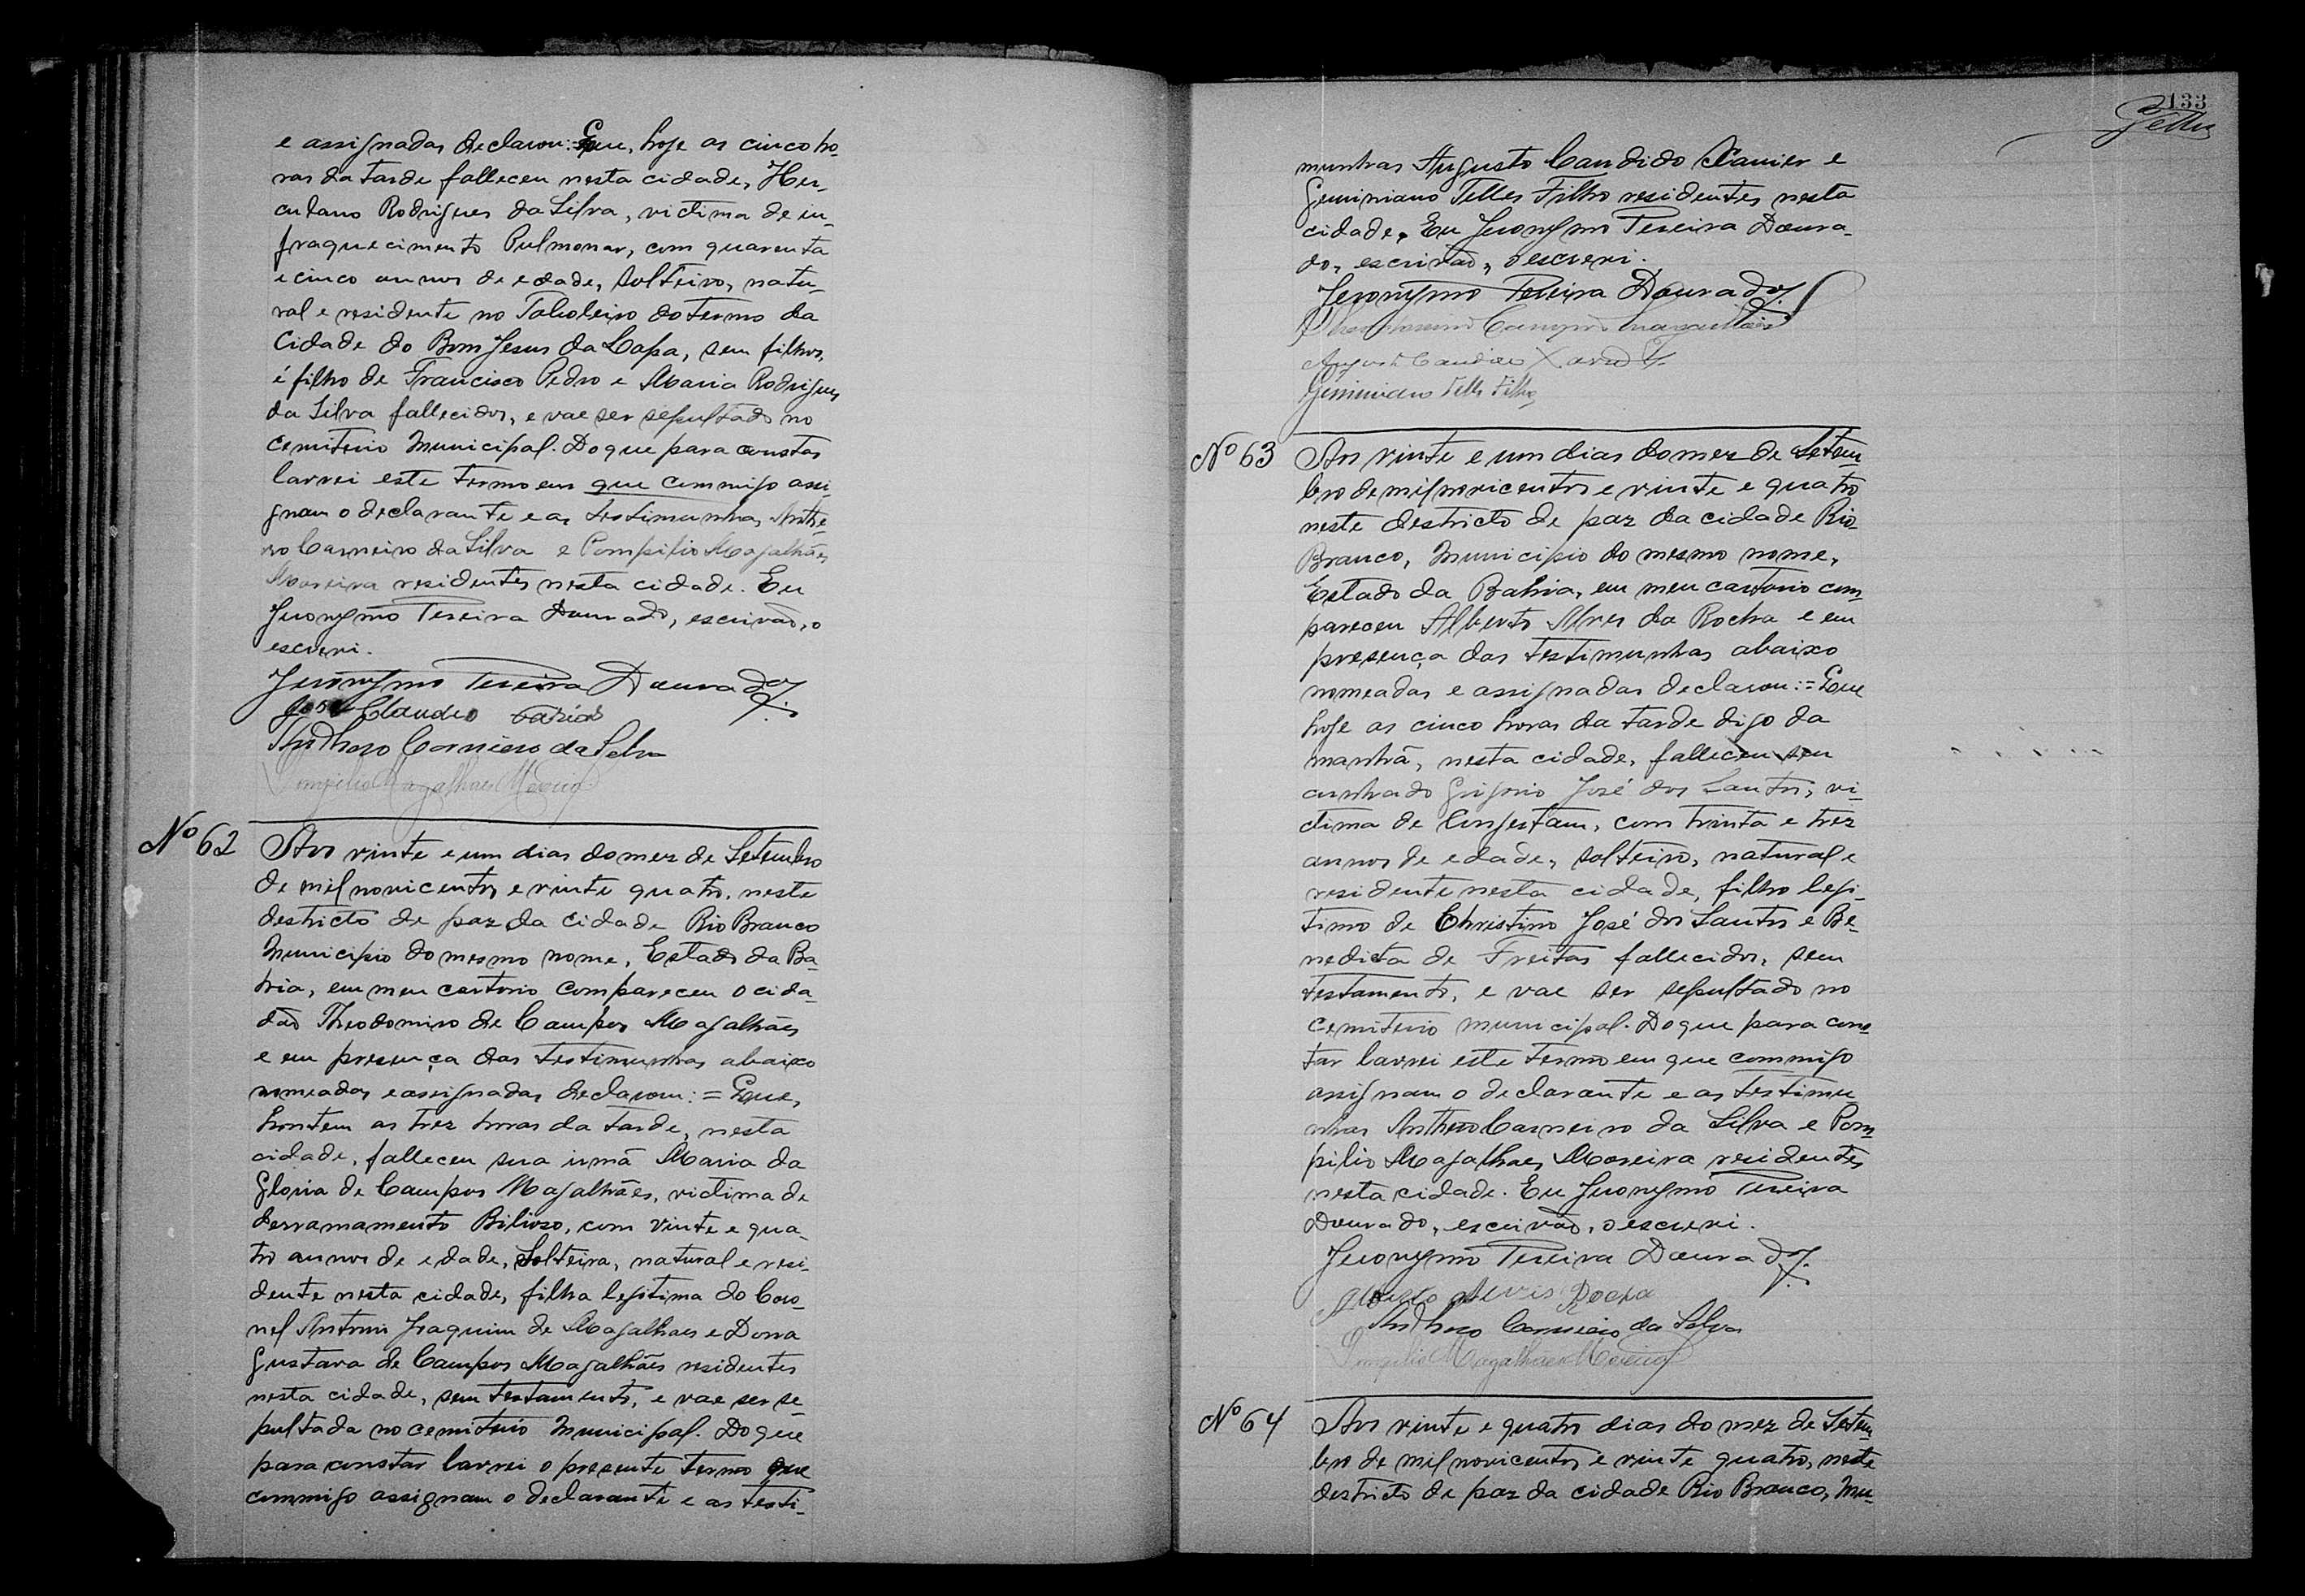 e assignadas declarou: Que, hoje as cinco ho-
ras da tarde falleceu nesta cidade, Her-
culano Rodrigues da Silva, victima de in-
fraquecimento Pulmonar, com quarenta
e cinco annos de edade, solteiro, natu-
ral e residente no Taboleiro do termo da
Cidade do Bom Jesus da Lapa, sem filhos,
é filho de Francisco Pedro e Maria Rodrigues
da Silva fallecidos, e vae ser sepultado no
cemiterio Municipal. Do que para constar
lavrei este termo em que commigo assi-
gnam o declarante e as testimunhas, Anthe-
ro Carneiro da Silva e Pompilio Magalhães
Moreira residentes nesta cidade. Eu
Jeronymo Teixeira Dourado, escrivão, o
escrevi.
Jeronymo Teixeira Dourado
José Claudio Farias
Anthero Carneiro da Silva
Pompilio Magalhães Moreira
Nº 62 Aos vinte e um dias do mez de Setembro
de mil novicentos e vinte quatro, neste
destricto de paz da cidade Rio Branco
Municipio do mesmo nome, Estado da Ba-
hia, em meu cartorio compareceu o cida-
dão Theodomiro de Campos Magalhães
e em presença das testimunhas abaixo
nomeadas e assignadas declarou: = Que,
hontem as trez horas da tarde, nesta
cidade, falleceu sua irmã Maria da
Gloria de Campos Magalhães, victima de
derramamento Bilioso, com vinte e qua-
tro annos de edade, Solteira, natural e resi-
dente nesta cidade, filha legitima do Coro-
nel Antonio Joaquim de Magalhaes e Dona
Gustava de Campos Magalhães residentes
nesta cidade, sem testamento, e vae ser se-
pultada no cemiterio Municipal. Do que
para constar lavrei o presente termo que
commigo assignam o declarante e as testi-
133
Telles
munhas Augusto Candido Xavier e
Geminiano Telles Filho residentes nesta
cidade. Eu Jeronymo Teixeira Doura-
do, escrivão, o escrevi.
Jeronymo Teixeira Dourado
Theodomiro Campos Magalhães
Augusto Candido Xavier
Geminiano Telles Filho
Nº 63 Aos vinte e um dias do mez de Setem-
bro de mil novicentos e vinte e quatro
neste destricto de paz da cidade Rio-
Branco, Municipio do mesmo nome,
Estado da Bahia, em meu cartorio com-
pareceu Alberto Alves da Rocha e em
presença das testimunhas abaixo
nomeadas e assignadas declarou: = Que
hoje as cinco horas da tarde digo da
manhã, nesta cidade, falleceu seu
cunhado Grigorio José dos Santos, vi-
ctima de Congestam, com trinta e trez
annos de edade, solteiro, natural e
residente nesta cidade, filho legi-
timo de Christino José dos Santos e Be-
nedicta de Freitas fallecidos, sem
testamento, e vae ser sepultado no
cemiterio municipal. Do que para cons-
tar lavrei este termo em que commigo
assignam o declarante e as testimu-
nhas Anthero Carneiro da Silva e Pom-
pilio Magalhaes Moreira residentes
nesta cidade. Eu Jeronymo Teixeira
Dourado, escrivão, o escrevi.
Jeronymo Teixeira Dourado
Alberto Alves Rocha
Anthero Carneiro da Silva
Pompilio Magalhães Moreira
Nº 64 Aos vinte e quatro dias do mez de Setem-
bro de mil novicentos e vinte quatro, neste
destricto de paz da cidade Rio Branco, Mu-